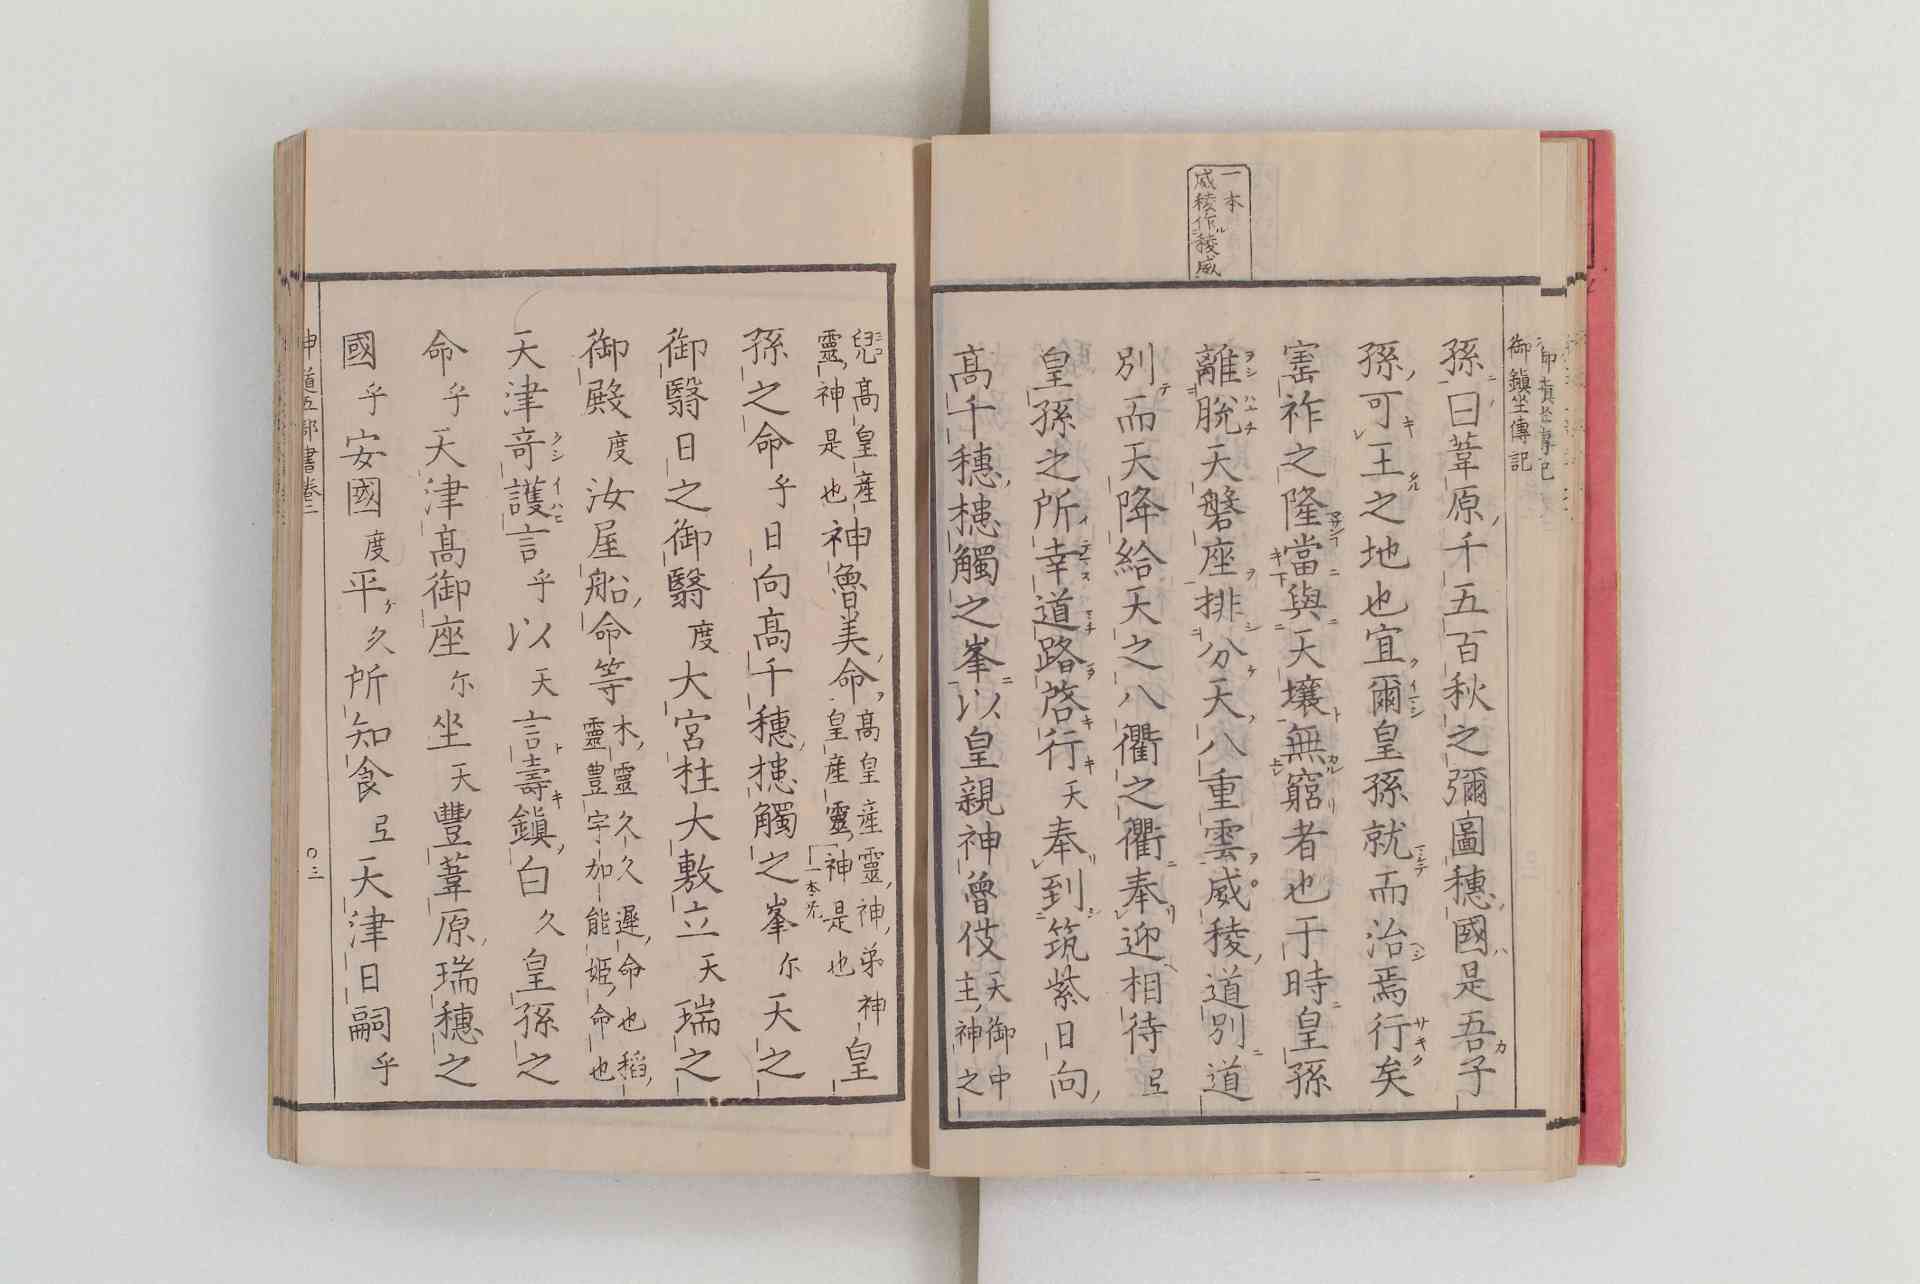 一本
威稜作稜威
御鎮坐傳記
孫曰葦原千五百秋之彌圖穗國是吾子
孫可王之地也宜爾皇孫就而治焉行矣
寚祚之隆當與天壤無窮者也于時皇孫
離脫天磐座排分天八重雲威稜道別道
別而天降給天之八衢之衢奉迎相待弖
皇孫之所幸道路啓行天奉到筑紫日向
高千穗槵觸之峯以皇親神魯伎天御中主神之
兒高皇產靈神是也神魯美命高皇産靈神弟神皇産靈神是也一本无神皇
孫之命乎日向高千穗槵觸之峯尓天之
御翳日之御翳度大宮柱大敷立天瑞之
御殿度汝屋船命等木靈久久遲命也稻靈豊宇加能姬命也
天津奇護言乎以天言壽鎭白久皇孫之
命乎天津高御座尓坐天豐葦原瑞穗之
國乎安國度平久所知食弖天津日嗣乎
神道五部書卷二
〇三